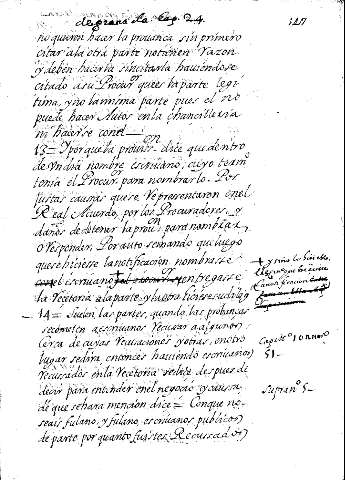 de grana la Cap. 24.
no quieren hacer la provanca sin primero
citar a la otra parte no tienen razon
y deben hacerla sin citarla haviendose
citado a su Procur.or que es la parte legi
tima, y no la misma parte pues el no
puede hacer Autos en la chancilleria
ni hacerse con el
13 = Y porque la provis.on dice que dentro
de un dia nombre escrivano, cuyo term.o
toma el Procur.or para nombrarlo. Por
justas causas que se representaron en el
Real Acuerdo, por los Procuradores y
daños de detener la prov.on para nombrar,
o responder, Por auto se mando que luego
que se hiciese la notificacion nombrase
escrivano entregasse
la Receptoria a la parte y
14 = Suelen las partes, quando las probanzas
se cometen a escrivanos recusar a algunos,
Cerca de cuyas recusaciones y otras, en otro
lugar se dira entonces haviendo escrivanos
recusados en la Receptoria se le debe despues de
decir para entender en el negocio y causa
de que se hara mencion dice = Con que no
seais fulano, y fulano, escrivanos publicos
de parte por quanto fuisteis Recussados
Cap. 10 num.o
51.
Supra n.o 5